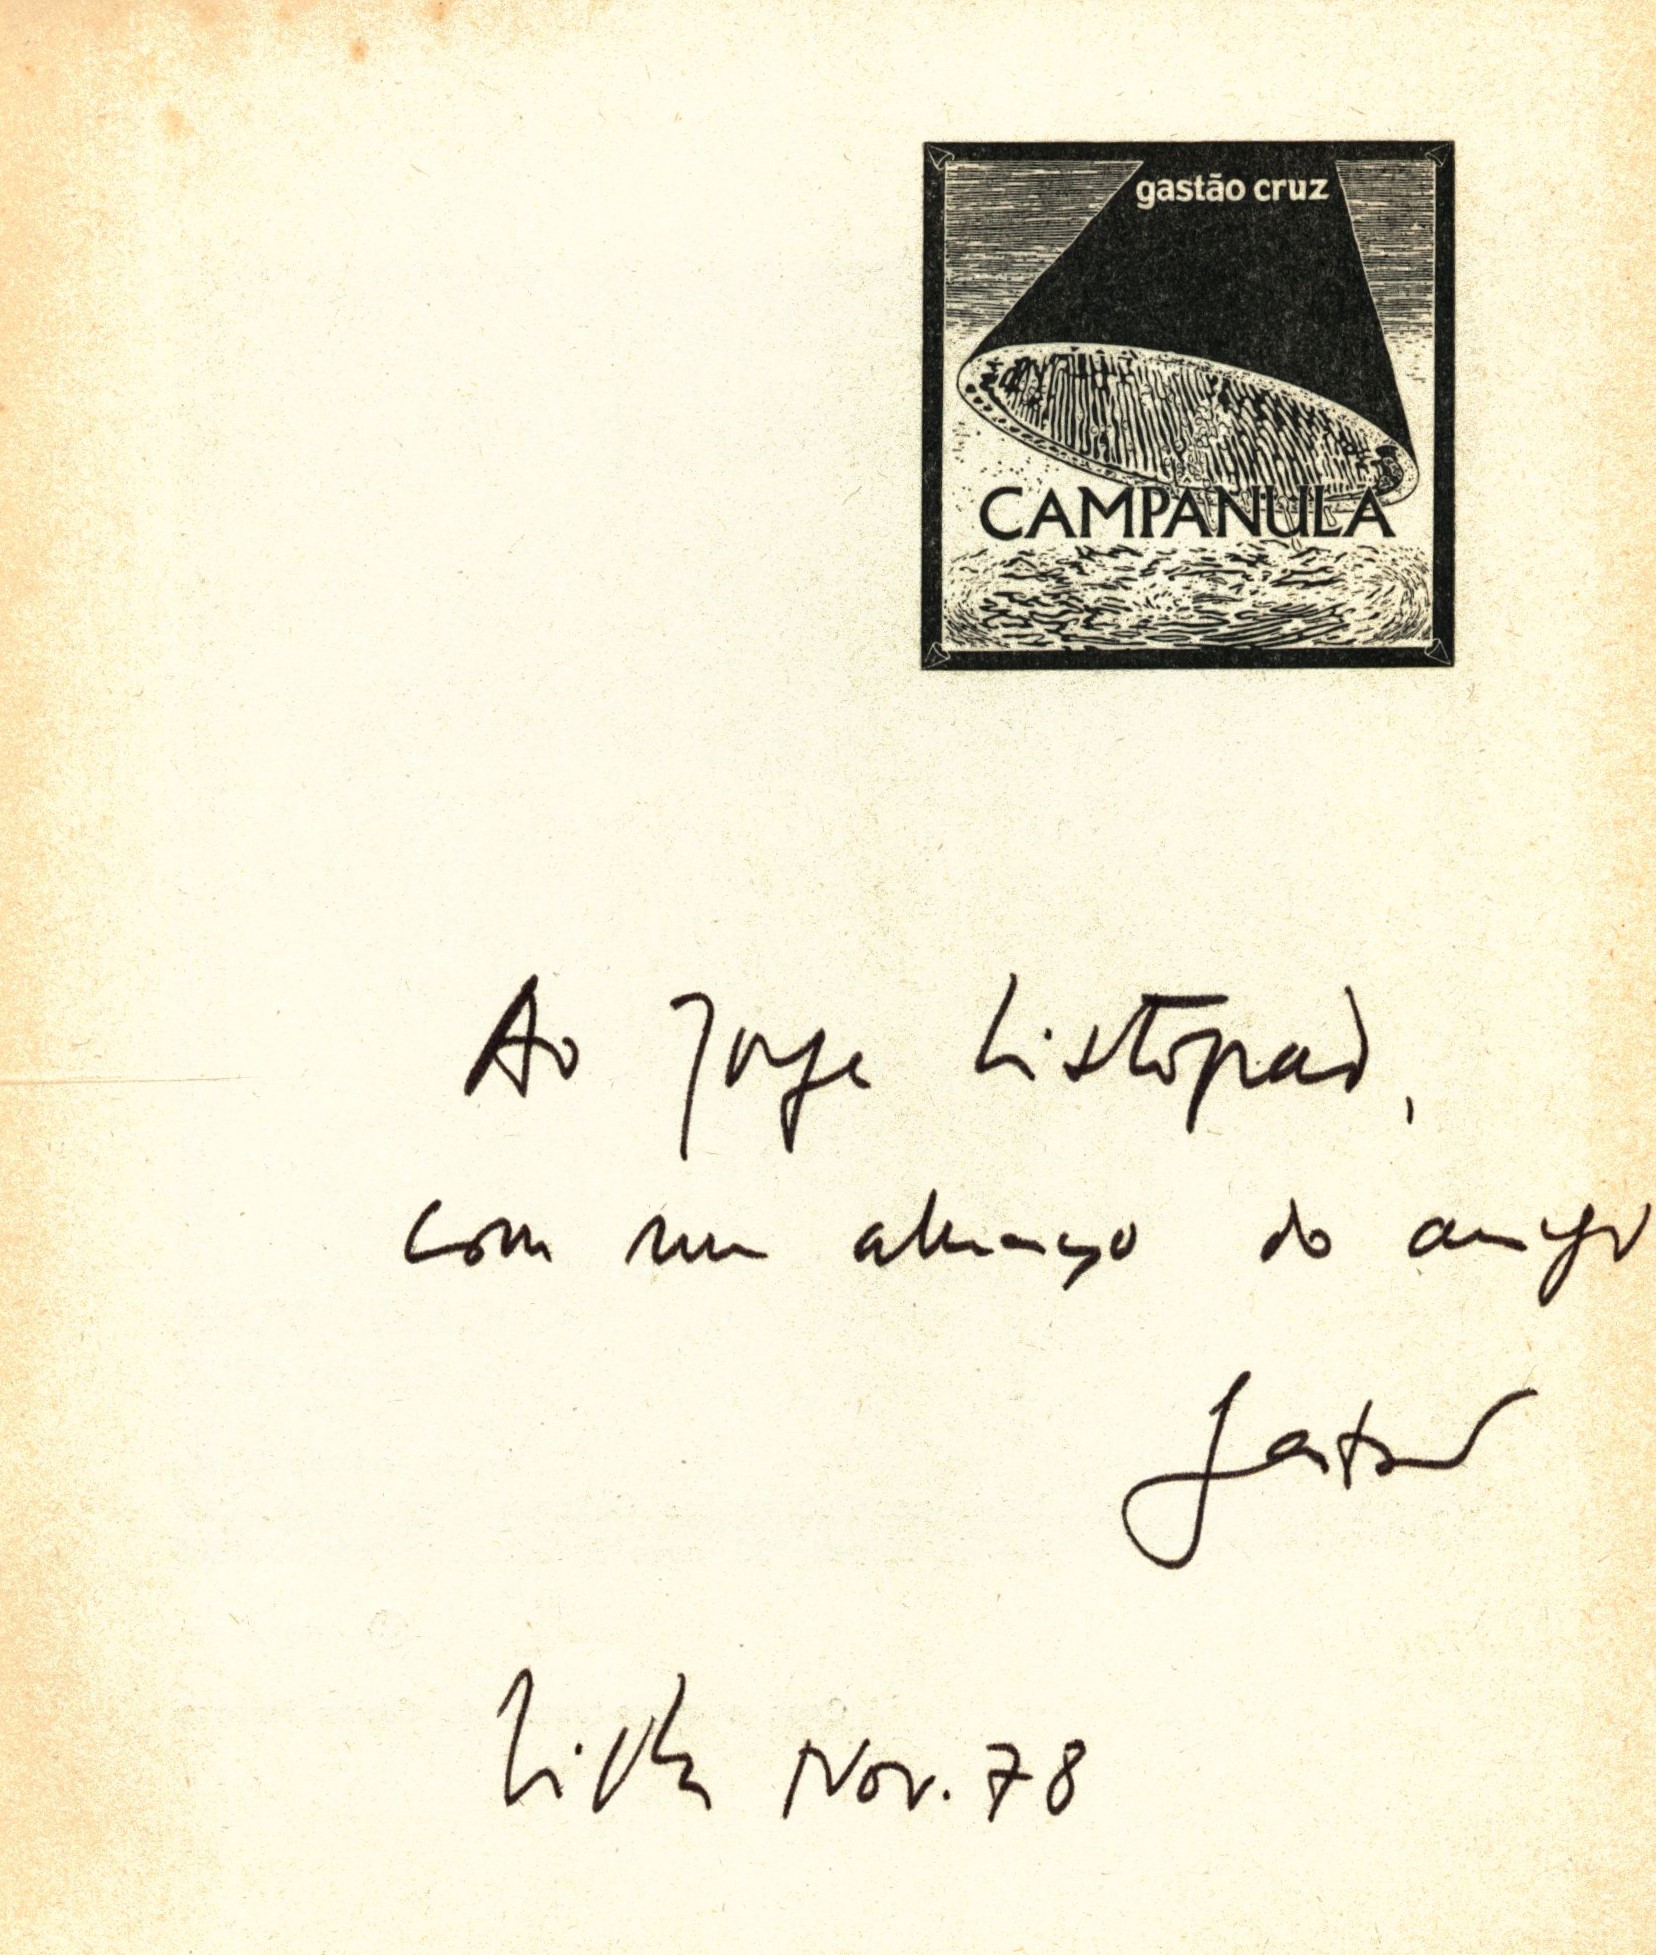 gastão cruz
CAMPANULA
Ao Jorge Listopad,
com um abraço do amigo
Gastão
Lisboa Nov. 78